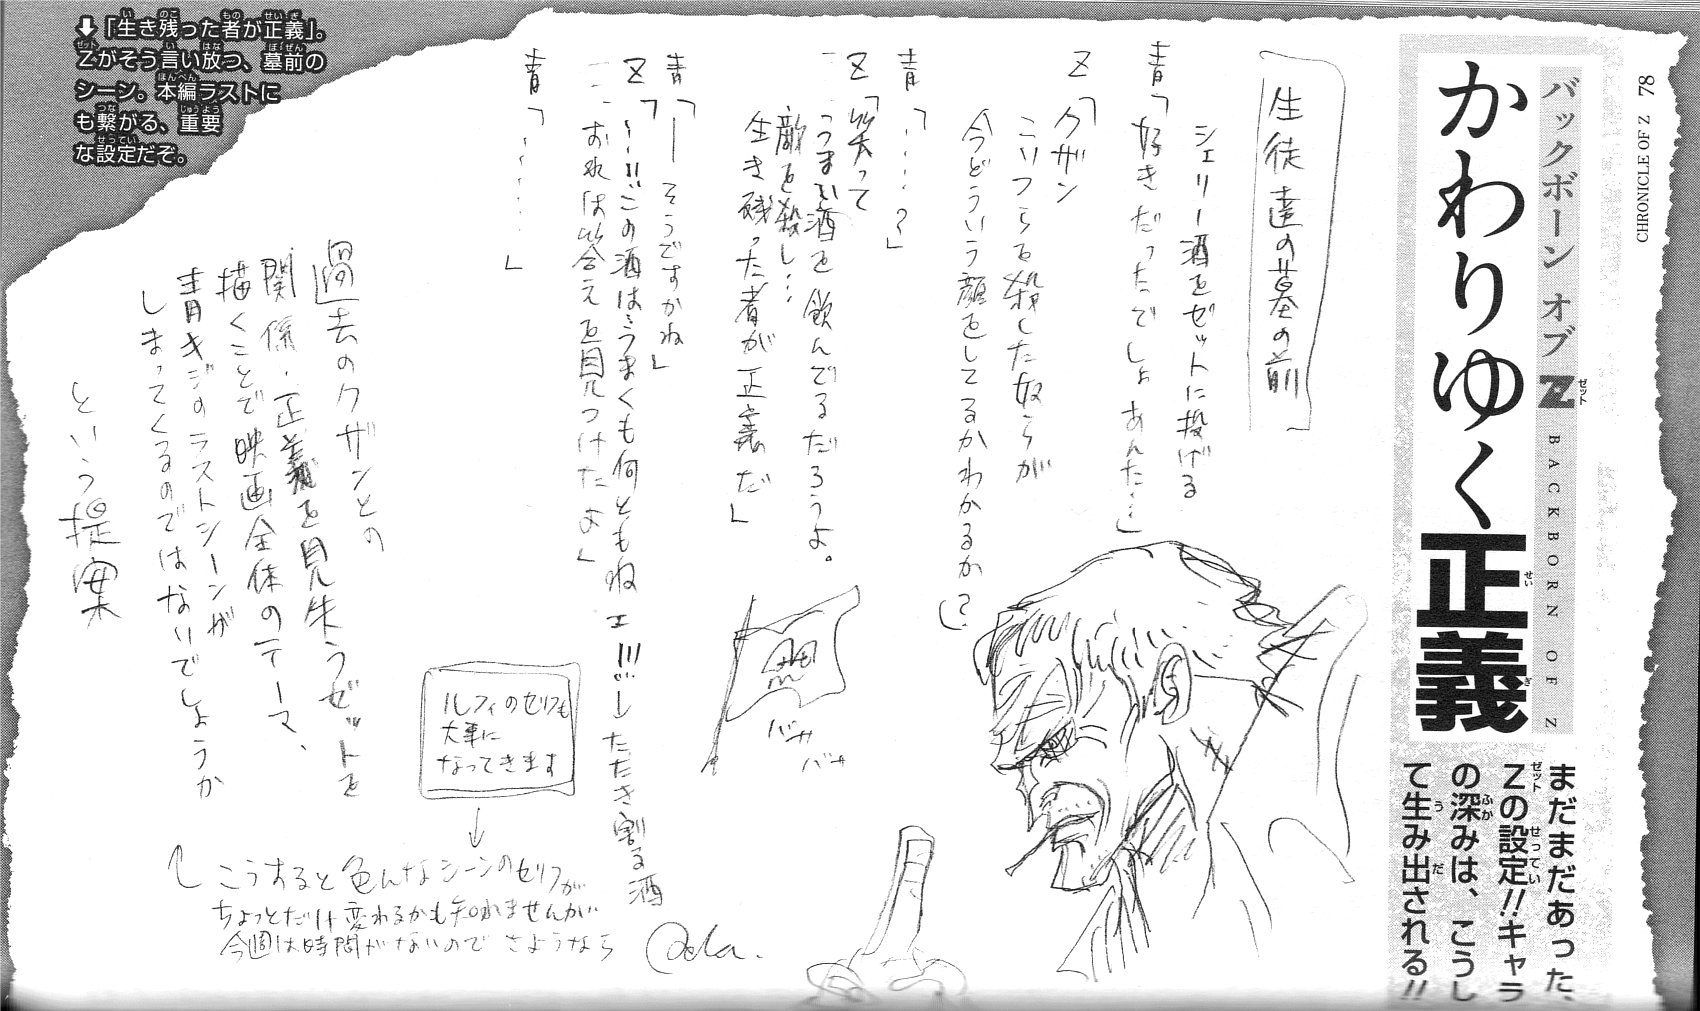 CHRONICLE OF Z 78
バックボーン オブ Z
BACKBORN OF Z
かわりゆく正義
まだまだあった、
Zの設定!!キャラ
の深みは、こうし
て生み出される!!
生徒達の墓の前
シェリー酒をゼットに投げる
青「好きだったでしょあんた…」
Z「クザン
こいつらを殺した奴らが
今どういう顔をしてるかわかるか?」
青「……?」
Z「笑って
うまい酒を飲んでるだろうよ。
敵を殺し…
生き残った者が正義だ」
青「―そうですかね」
Z「…!!この酒はうまくも何ともねェ!!!」たたき割る酒
「おれは答えを見つけたよ」
青「………」
バサ
バサ
過去のクザンとの
関係・正義を見失うゼットを
描くことで映画全体のテーマ、
青キジのラストシーンが
しまってくるのではないでしょうか
という提案
ルフィのセリフも
大事に
なってきます
こうすると色んなシーンのセリフが
ちょっとだけ変わるかも知れませんが
今週は時間がないので さようなら
Oda.
⬇「生き残った者が正義」。
Zがそう言い放つ、墓前の
シーン。本編ラストに
も繋がる、重要
な設定だぞ。